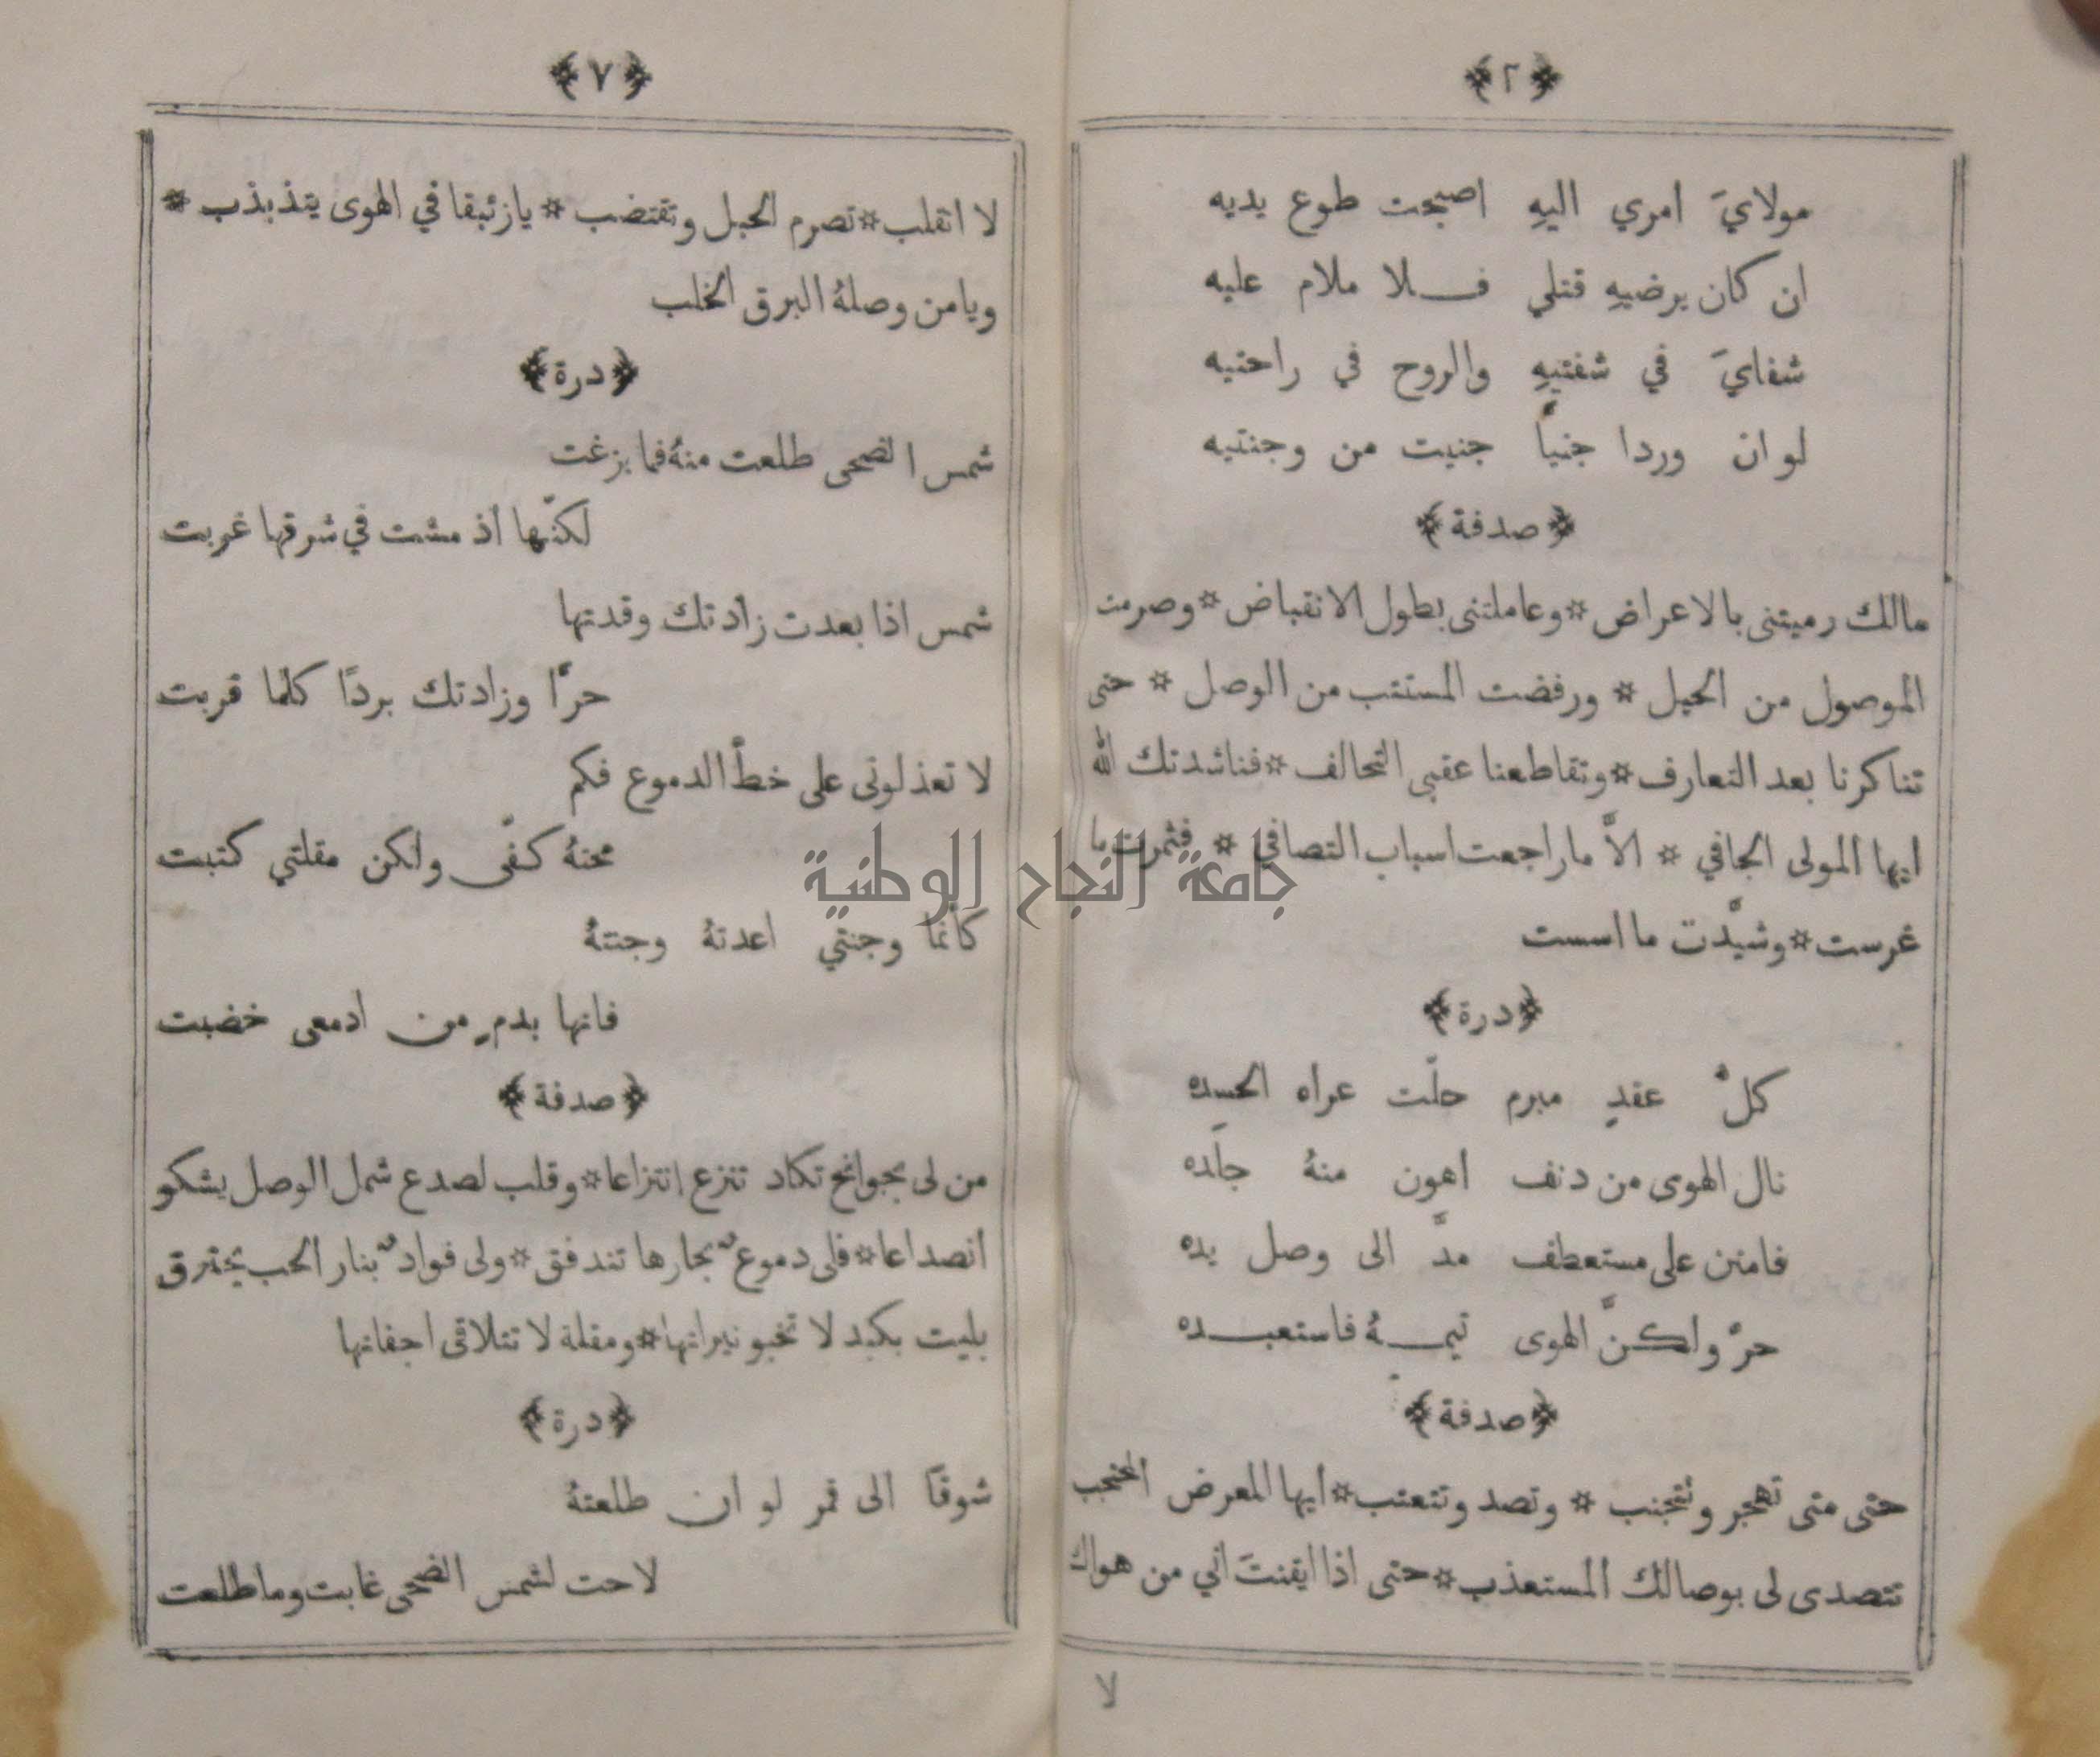 ﴿٢﴾
مولايَ امري اليهِ اصبحت طوع يديه
ان كان يرضيهِ قتلي فلا ملام عليه
شفايَ في شفتيهِ والروح في راحتيه
لو ان وردا جنياً جنيت من وجنتيه
﴿صدفة﴾
مالك رميتنى بالاعراض * وعاملتنى بطول الانقباض * وصرمت
الموصول من الحبل * ورفضت المستتب من الوصل * حتى
تناكرنا بعد التعارف * وتقاطعنا عقبى التحالف * فناشدتك الله
ايها المولى الجافي * الاَّ ماراجعت اسباب التصافي * فثمرت ما
غرست * وشيَّدت ما اسست
﴿درة﴾
كلُّ عقدٍ مبرم حلّت عراه الحسده
نال الهوى من دنف اهون منهُ جلَده
فامنن على مستعطف مدَّ الى وصل يده
حرٌّ ولكنَّ الهوى تيمهُ فاستعبده
﴿صدفة﴾
حتى متى تهجر وتتجنب * وتصد وتتعتب * ايها المعرض المحتجب
تتصدى لى بوصالك المستعذب * حتى اذا ايقنتَ اني من هواك
لا
﴿٧﴾
لا انقلب * تصرم الحبل وتقتضب * يازئبقا في الهوى يتذبذب *
ويامن وصلهُ البرق الخلب
﴿درة﴾
شمس الضحى طلعت منهُ فما بزغت
لكنّها اذ مشت في شرقها غربت
شمس اذا بعدت زادتك وقدتها
حرًّا وزادتك بردًا كلما قربت
لا تعذلونى على خطّ الدموع فكم
محنهُ كفّى ولكن مقلتي كتبت
كأنما وجنتي اعدتهُ وجنتهُ
فانها بدمٍ من ادمعى خضبت
﴿صدفة﴾
من لى بجوانح تكاد تنزع انتزاعا * وقلب لصدع شمل الوصل يشكو
انصداعا * فلى دموعٌ بحارها تندفق * ولى فوادٌ بنار الحب يحترق
بليت بكبد لا تخبو نيرانها * ومقلة لا تتلاقى اجفانها
﴿درة﴾
شوقاً الى قمر لو ان طلعتهُ
لاحت لشمس الضحى غابت وما طلعت
جامعة النجاح الوطنية